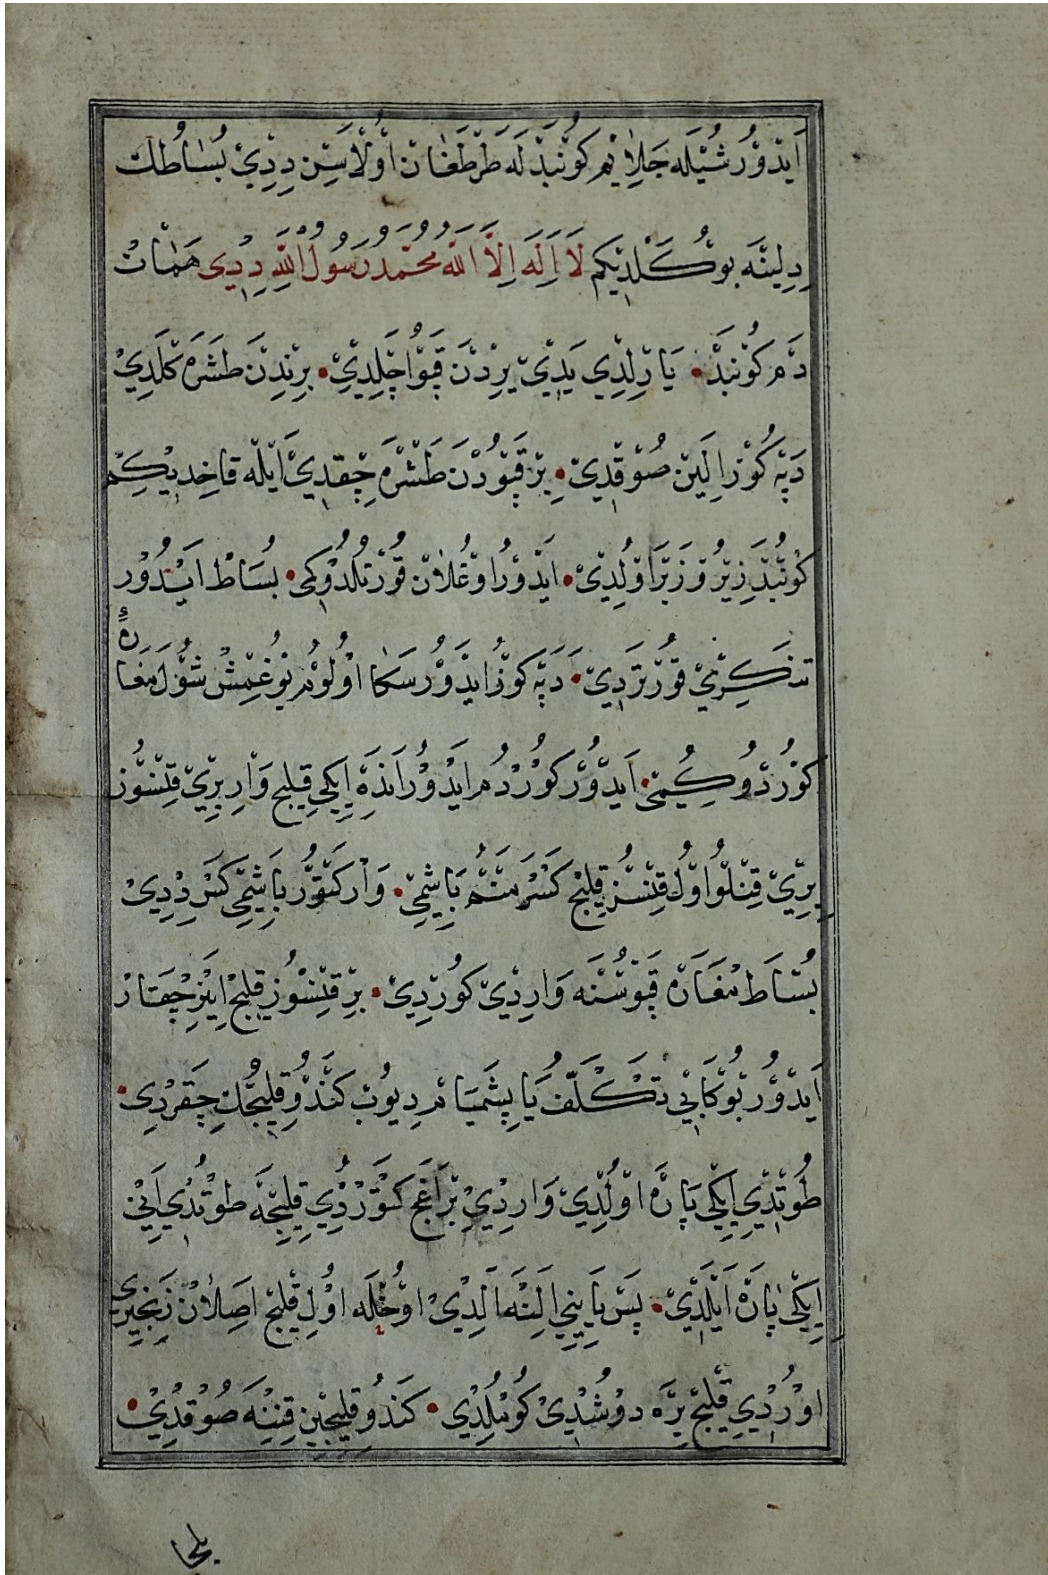 اَيْدُوْرُ شُيْلَه جَلَايِمْ كُوْنْبَدْ لَه طَرْطَغَانْ اُوْلَاسِنْ دِدِيْ بُسَاطُكْ
دِلِينَه بُوْ كَلْدِيكِمْ لَا اِلَهَ اِلَّا اللّٰهُ مُحَمَّدٌ رَسُولُ اللّٰهِ دِدِى هَمَانْ
دَمْ كُوْنْبَدْ • يَارِلْدِي يَدِيْ يِرِدْنَ قَپُوْ اَچِلْدِيْ • بِرِنْدِنْ طَشَرَه كَلْدِيْ
دَپَه كُوْزْ اَلِينْ صُوْقْدِيْ • بِرْ قَپُوْدَنْ طَشْرَه چِقْدِيْ اَيْلَه قَاخِدِيْكِمْ
كُوْنْبَدْ زِيْرُ وُ زَبَرْ اُوْلْدِيْ • اَيْدُوْرُ اُوْغُلَانْ قُوْرْتُلْدُوْكْمِى • بُسَاطْ اَيْدُوْر
تَنْكِرِمْ قُوْرْتَرْدِيْ • دَپَه كُوْزْ اَيْدُوْرُ سَكَا اُوْلُوْمْ يُوْغِمِشْ شُوْلْ مَغَارَهْ
كُوْرْدُوْكْمِى • اَيْدُوْرْ كُوْرْدُمْ اَيْدُوْرُ اَنْدَه اِيكِي قِيلِجْ وَارْ بِرِيْ قِنْسُوْز
بِرِيْ قِنْلُوْ اُوْلْ قِنْسُزْ قِلِجْ كَسَرْ مَنُمْ بَاشِمِى • وَارْ كَتُوْرْ بَاشِمِى كَسْ دِدِيْ
بُسَاطْ مَغَارَه قَپُوْسُنَه وَارْدِيْ كُوْرْدِيْ • بِرْ قِنْسُوْزْ قِلِجْ اِيْنَرْ چِقَارْ
اَيْدُوْرْ بُوْ كَا بِي تَكَلُّفْ يَاپِشْمِيَامْ دِيُوبْ كَنْدُوْ قِلِيجُنْ چِقَرْدِى •
طُوْتْدِي اِيكِى پَارَه اُوْلْدِيْ وَارْدِيْ بِرْ اَغَجْ كَتُوْرْدِي قِلِيجَه طُوْتْدِي اَنِى
اِيكِى پَارَه اَيْلَدِيْ • پَسْ يَايِنِي اَلِنَه اَلْدِيْ اُوْخْلَه اُوْلْ قِلِجْ اَصِلَانْ زَنْجِيرِى
اُوْرْدِي قِلِجْ يِرَه دُوْشْدِيْ كُوْمُلْدِي • كَنْدُوْ قِلِيجِينْ قِنِنَه صُوْقْدِيْ •